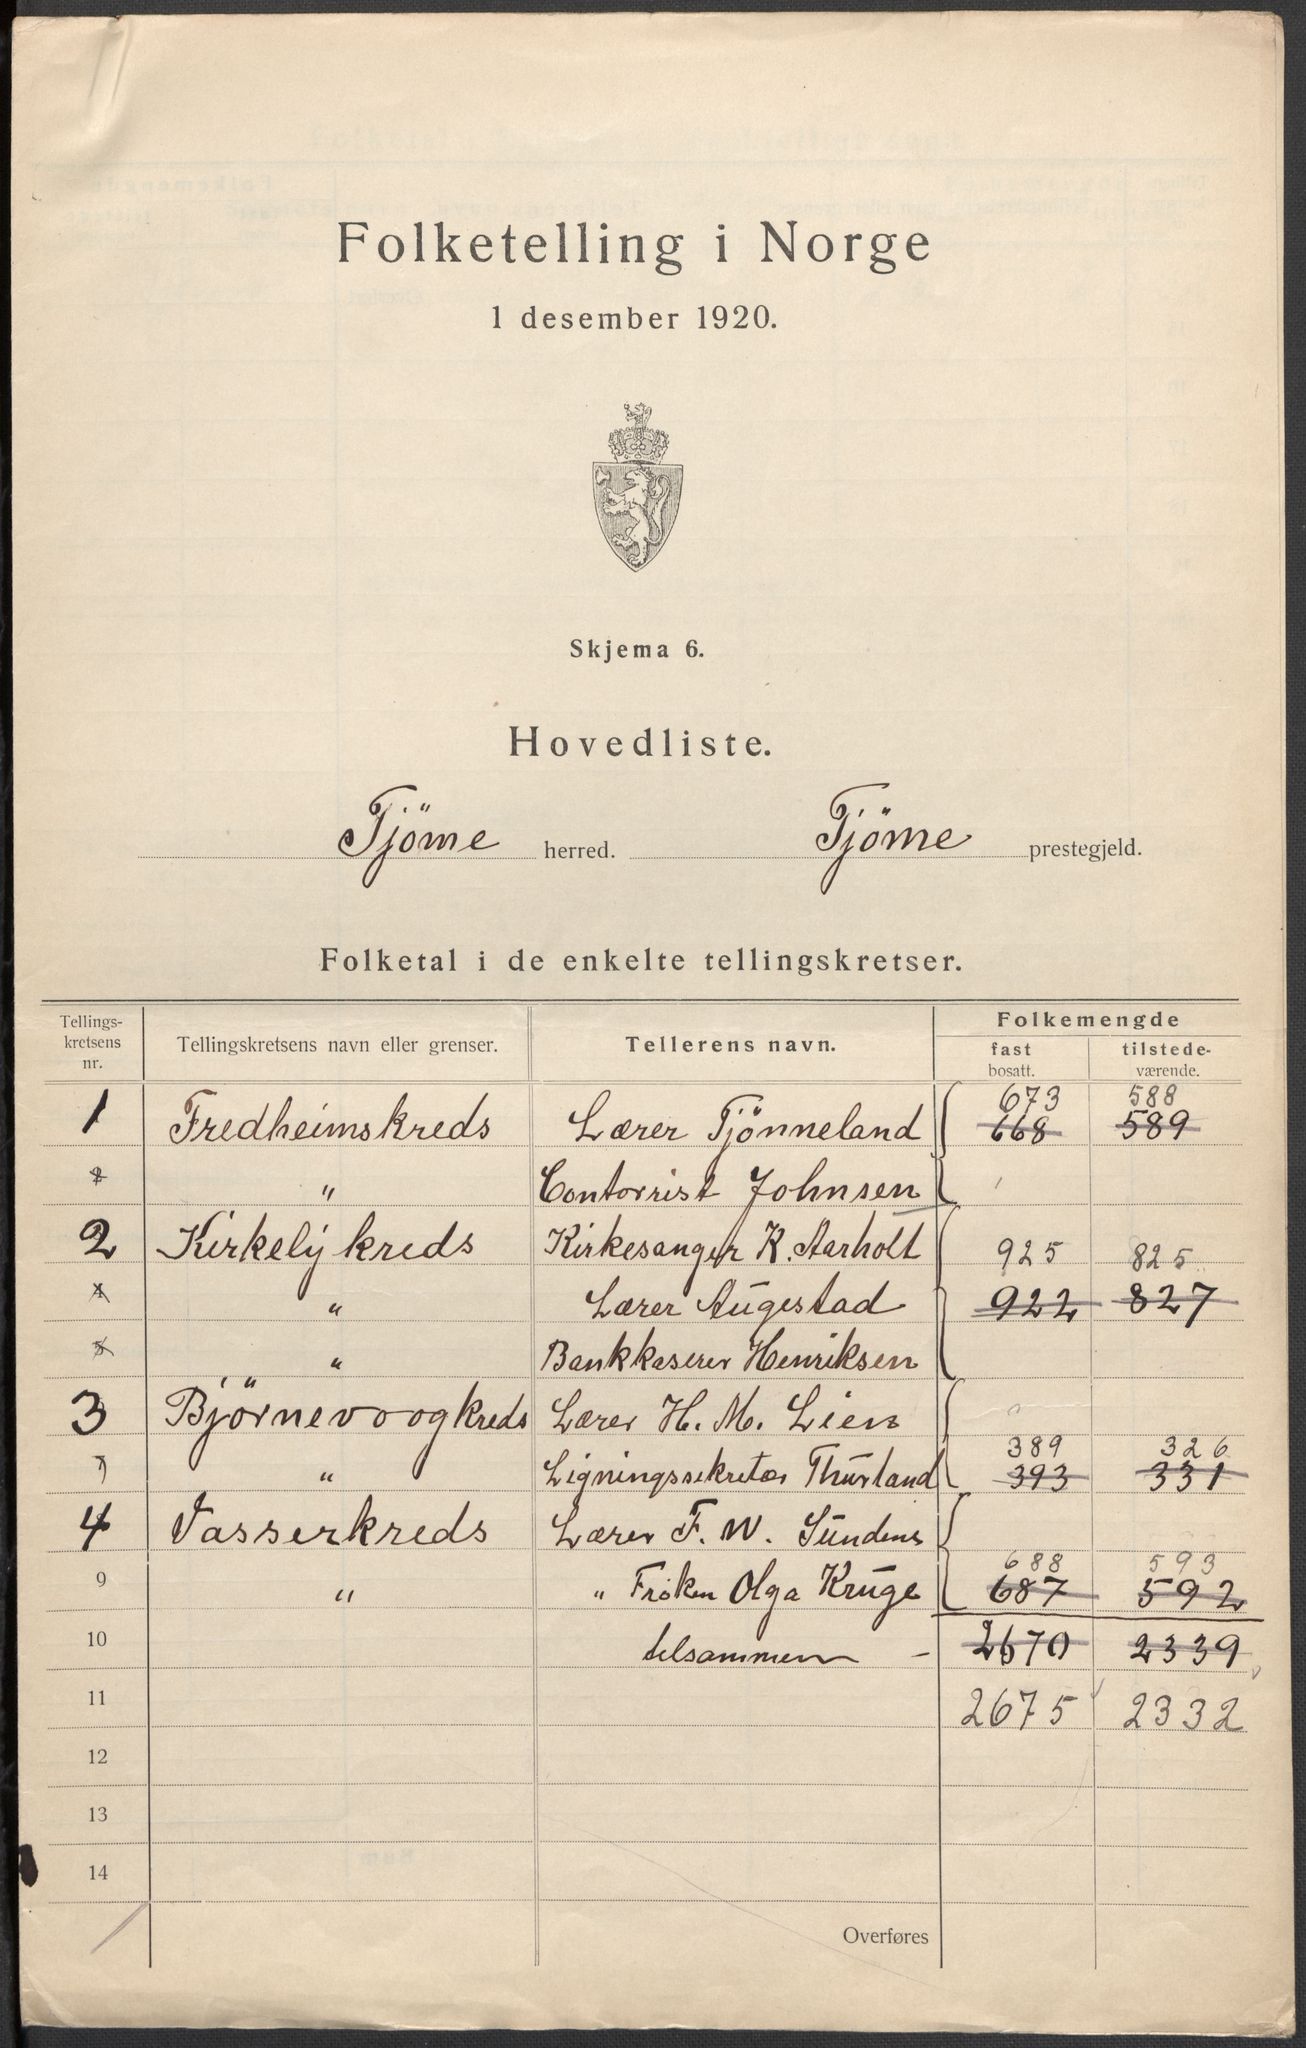 Folketelling i Norge
1 desember 1920.
Skjema 6.
Hovedliste.
Tjöme herred. Tjöme prestegjeld.
Folketal i de enkelte tellingskretser.
Tellingskretsens nr. Tellingskretsens navn eller grenser. Tellerens navn. Folkemengde
fast bosatt. tilstedeværende.
673 588
1 Fredheimskreds Lærer Tjönneland 668 589
2 " Contorrist Johnsen
2 Kirkelÿ kreds Kirkesanger K. Aarholt 925 825
4 " Lærer Augestad 922 827
5 " Bankkaserer Henriksen
3 Bjørnevoogkreds Lærer H. M. Lien
389 326
7 " Ligningssekretær Thurland 393 331
4 Vasserkreds Lærer F. W. Sundene
688 593
9 " " Frøken Olga Kruge 687 592
10 tilsammen - 2670 2339
11 2675 2332
12
13
14
Overføres